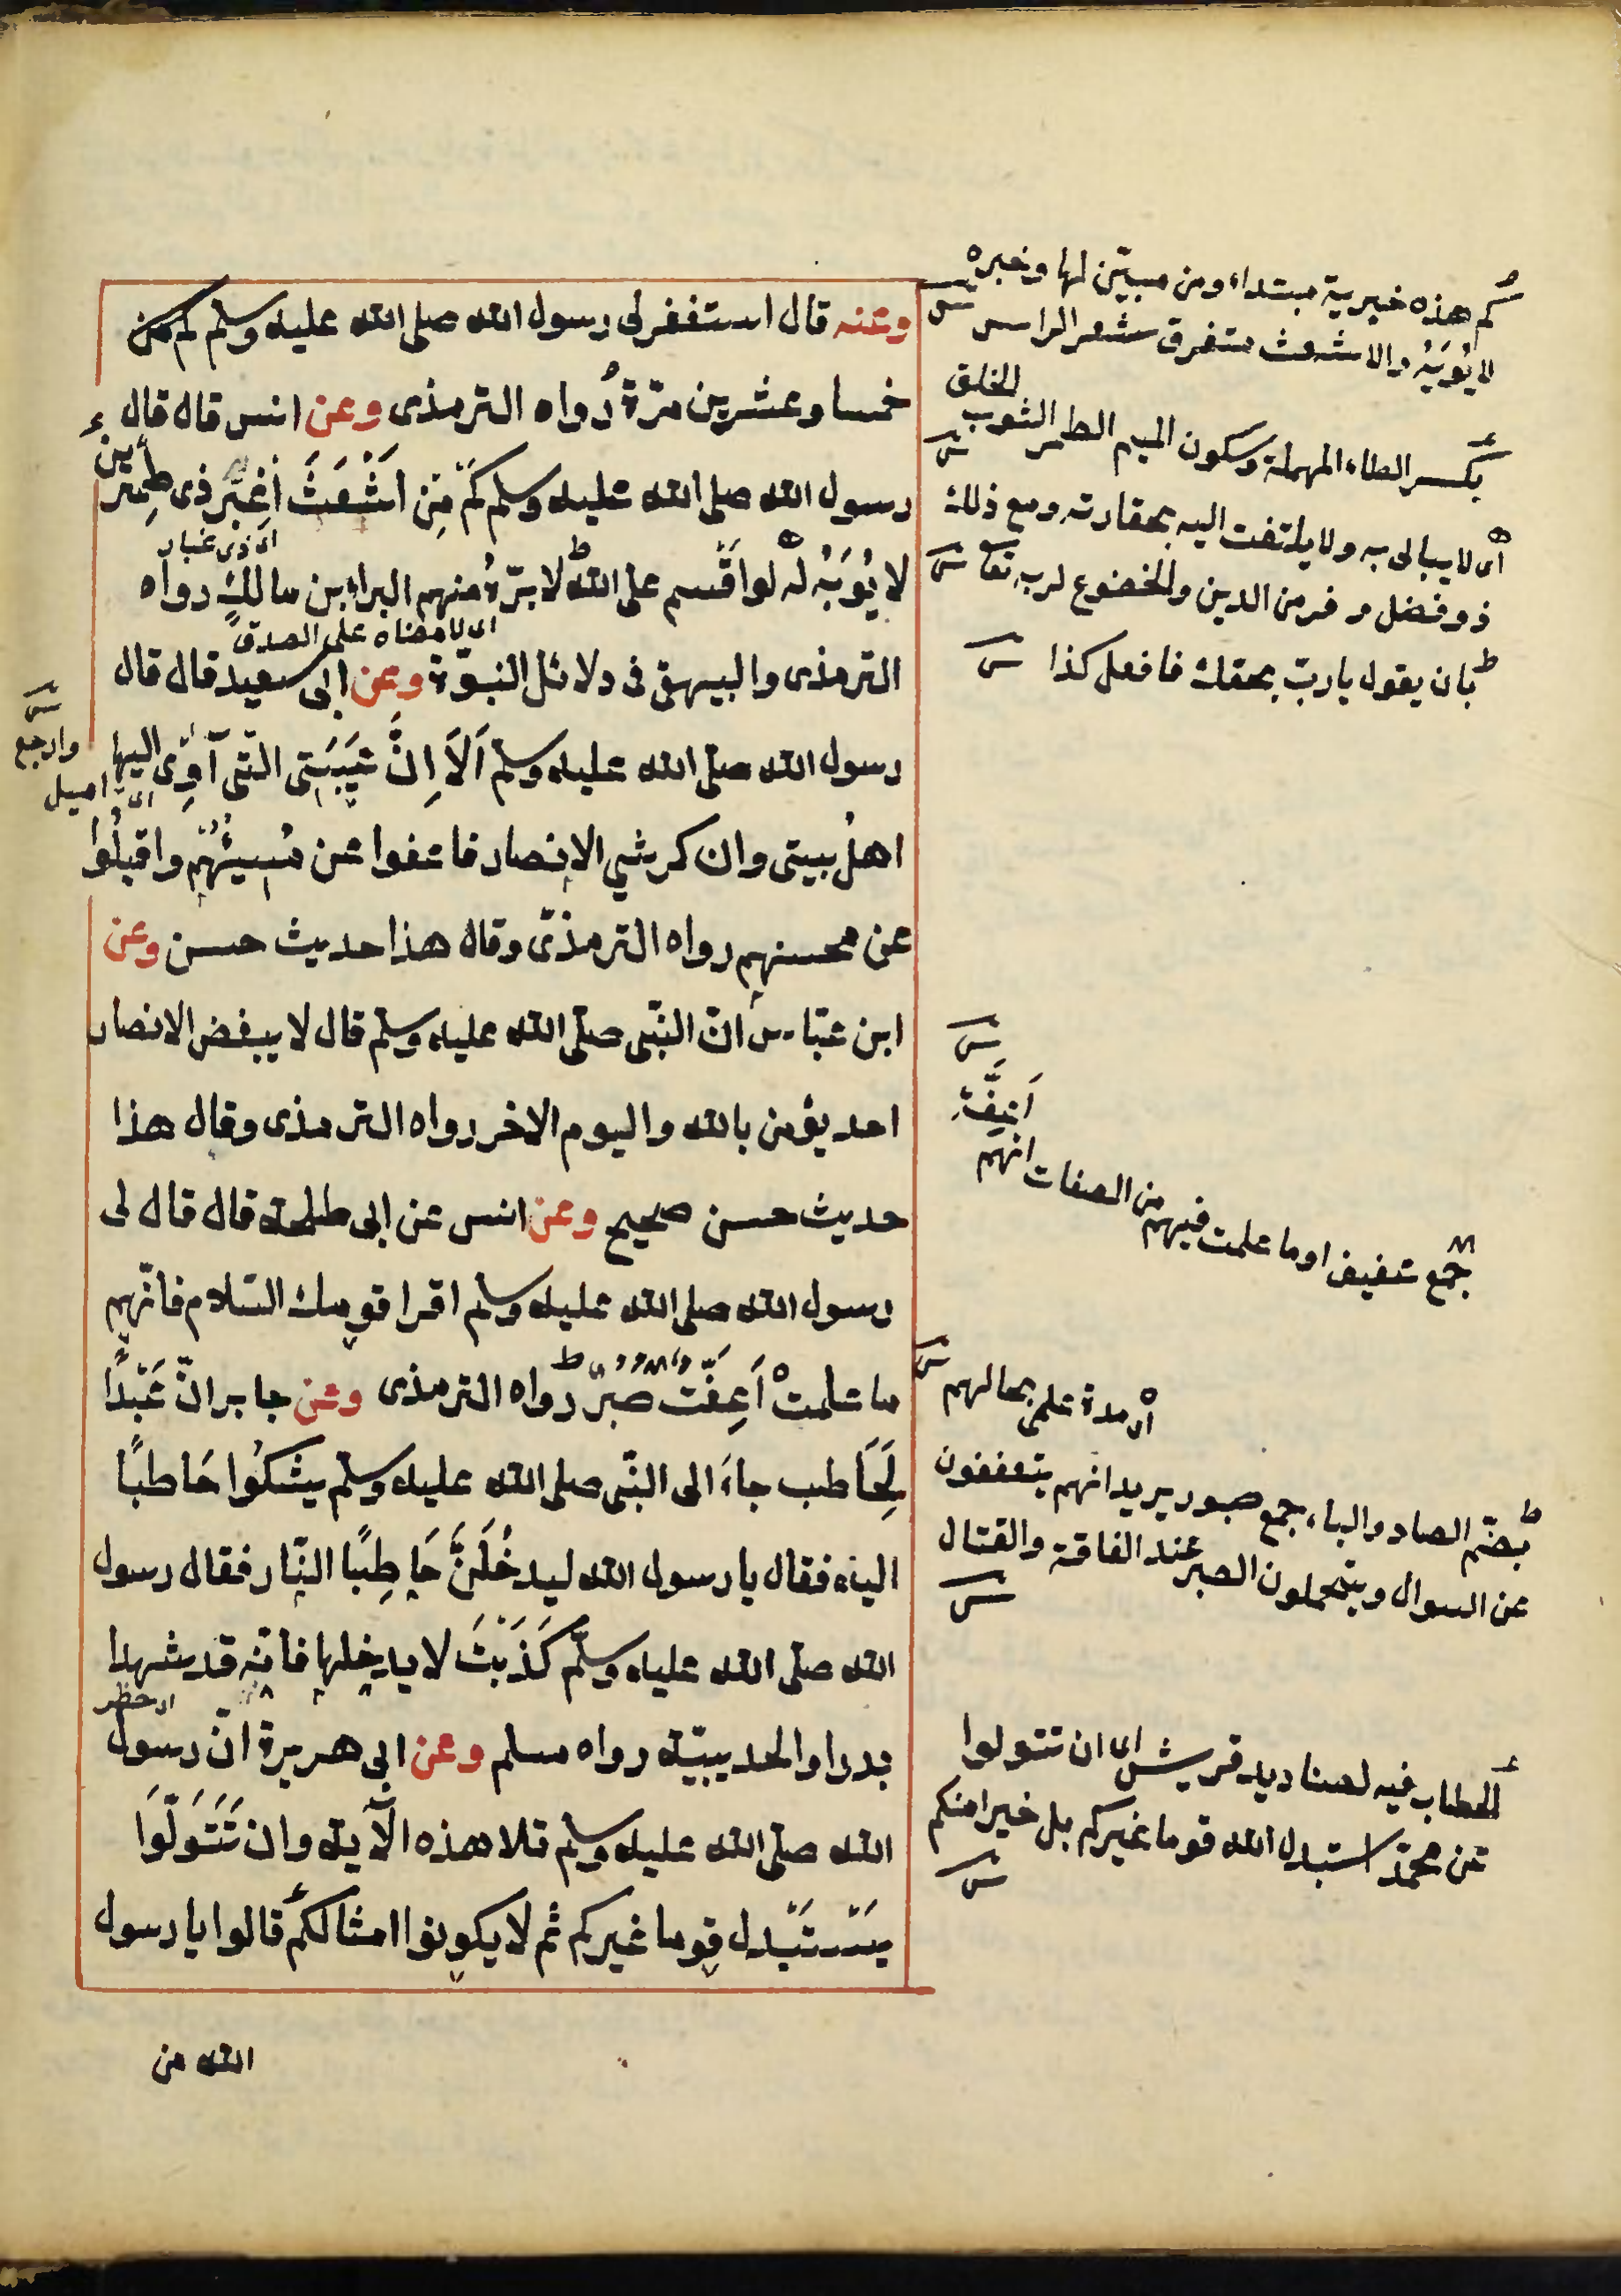 وعنه قال استغفر لى رسول الله صلى الله عليه وسلم
خمسا وعشرين مرّة رواه الترمذى وعن انس قال قال
رسول الله صلى الله عليه وسلم كَمْ مِن اَشْعَثَ اَغْبَرَ ذى طِمْرَين
اى ذى غبار
لا يُوبَهُ لَهُ لو اقسم على الله لابرّه منهم البراء بن مالك رواه
اى لامضاه على الصدق
الترمذى والبيهقى فى دلائل النبوّة وعن ابى سعيد قال قال
رسول الله صلى الله عليه وسلم اَلاَ اِنَّ عَيْبَتِى التّى آوِى اليها
اهلُ بيتى وان كرشي الانصار فاعفوا عن مُسِيئِهُم واقبلُوا
عن محسنهم رواه الترمذىّ وقال هذا حديث حسن وعن
ابن عبّاس انّ النبّى صلّى الله عليه وسلم قال لا يبغض الانصار
احد يؤمن بالله واليوم الاخر رواه الترمذى وقال هذا
حديث حسن صحيح وعن انس عن ابى طلحة قال قال لى
رسول الله صلى الله عليه وسلم اقرا قومك السّلام فانّهم
ما علمتْ اَعِفّت صُبُرٌ رواه الترمذى وعن جابر انّ عَبْدًا
لِحَاطب جاءَ الى النبّى صلى الله عليه وسلم يشكُوا حَاطبًا
اليه فقال يا رسول الله ليدخُلَنَّ حَاطِبًا النّار فقال رسول
الله صلّى الله عليه وسلّم كَذَبْتَ لا يدخلها فانّه قد شهد
اى حضر
بدرا والحديبيّة رواه مسلم وعن ابى هريرة انّ رسول
الله صلّى الله عليه وسلم تلا هذه الآية وان تَتَوَلَّوا
يَسْتَبْدل قوما غيركم ثم لا يكونوا امثالكم قالوا يا رسول
الله من
كم هذه خبرية مبتداء ومن مبيّن لها وخبره
لا يُوبَهُ والاشعث متفرق شعر الراس
بكسر الطاء المهملة وسكون الميم الطمر الثوب
الخلق
اى لا يبالى به ولا يلتفت اليه بحقارته ومع ذلك
ذو فضل وفر من الدين والخضوع لربه تعا
بان يقول يا ربّ بحقك فافعل كذا
وارجع
اى اميل
جمع عفيف او ما علمت فيهم من الصفات انهم
اى مدة علمى بحالهم
بضمّ الصاد والباء جمع صبور يريد انهم يتعففون
عن السوال ويتحملون الصبر عند الفاقة والقتال
الخطاب فيه لصناديد قريش اى ان تتولوا
عن محمّد استبدل الله قوما غيركم بل خيرا منكم